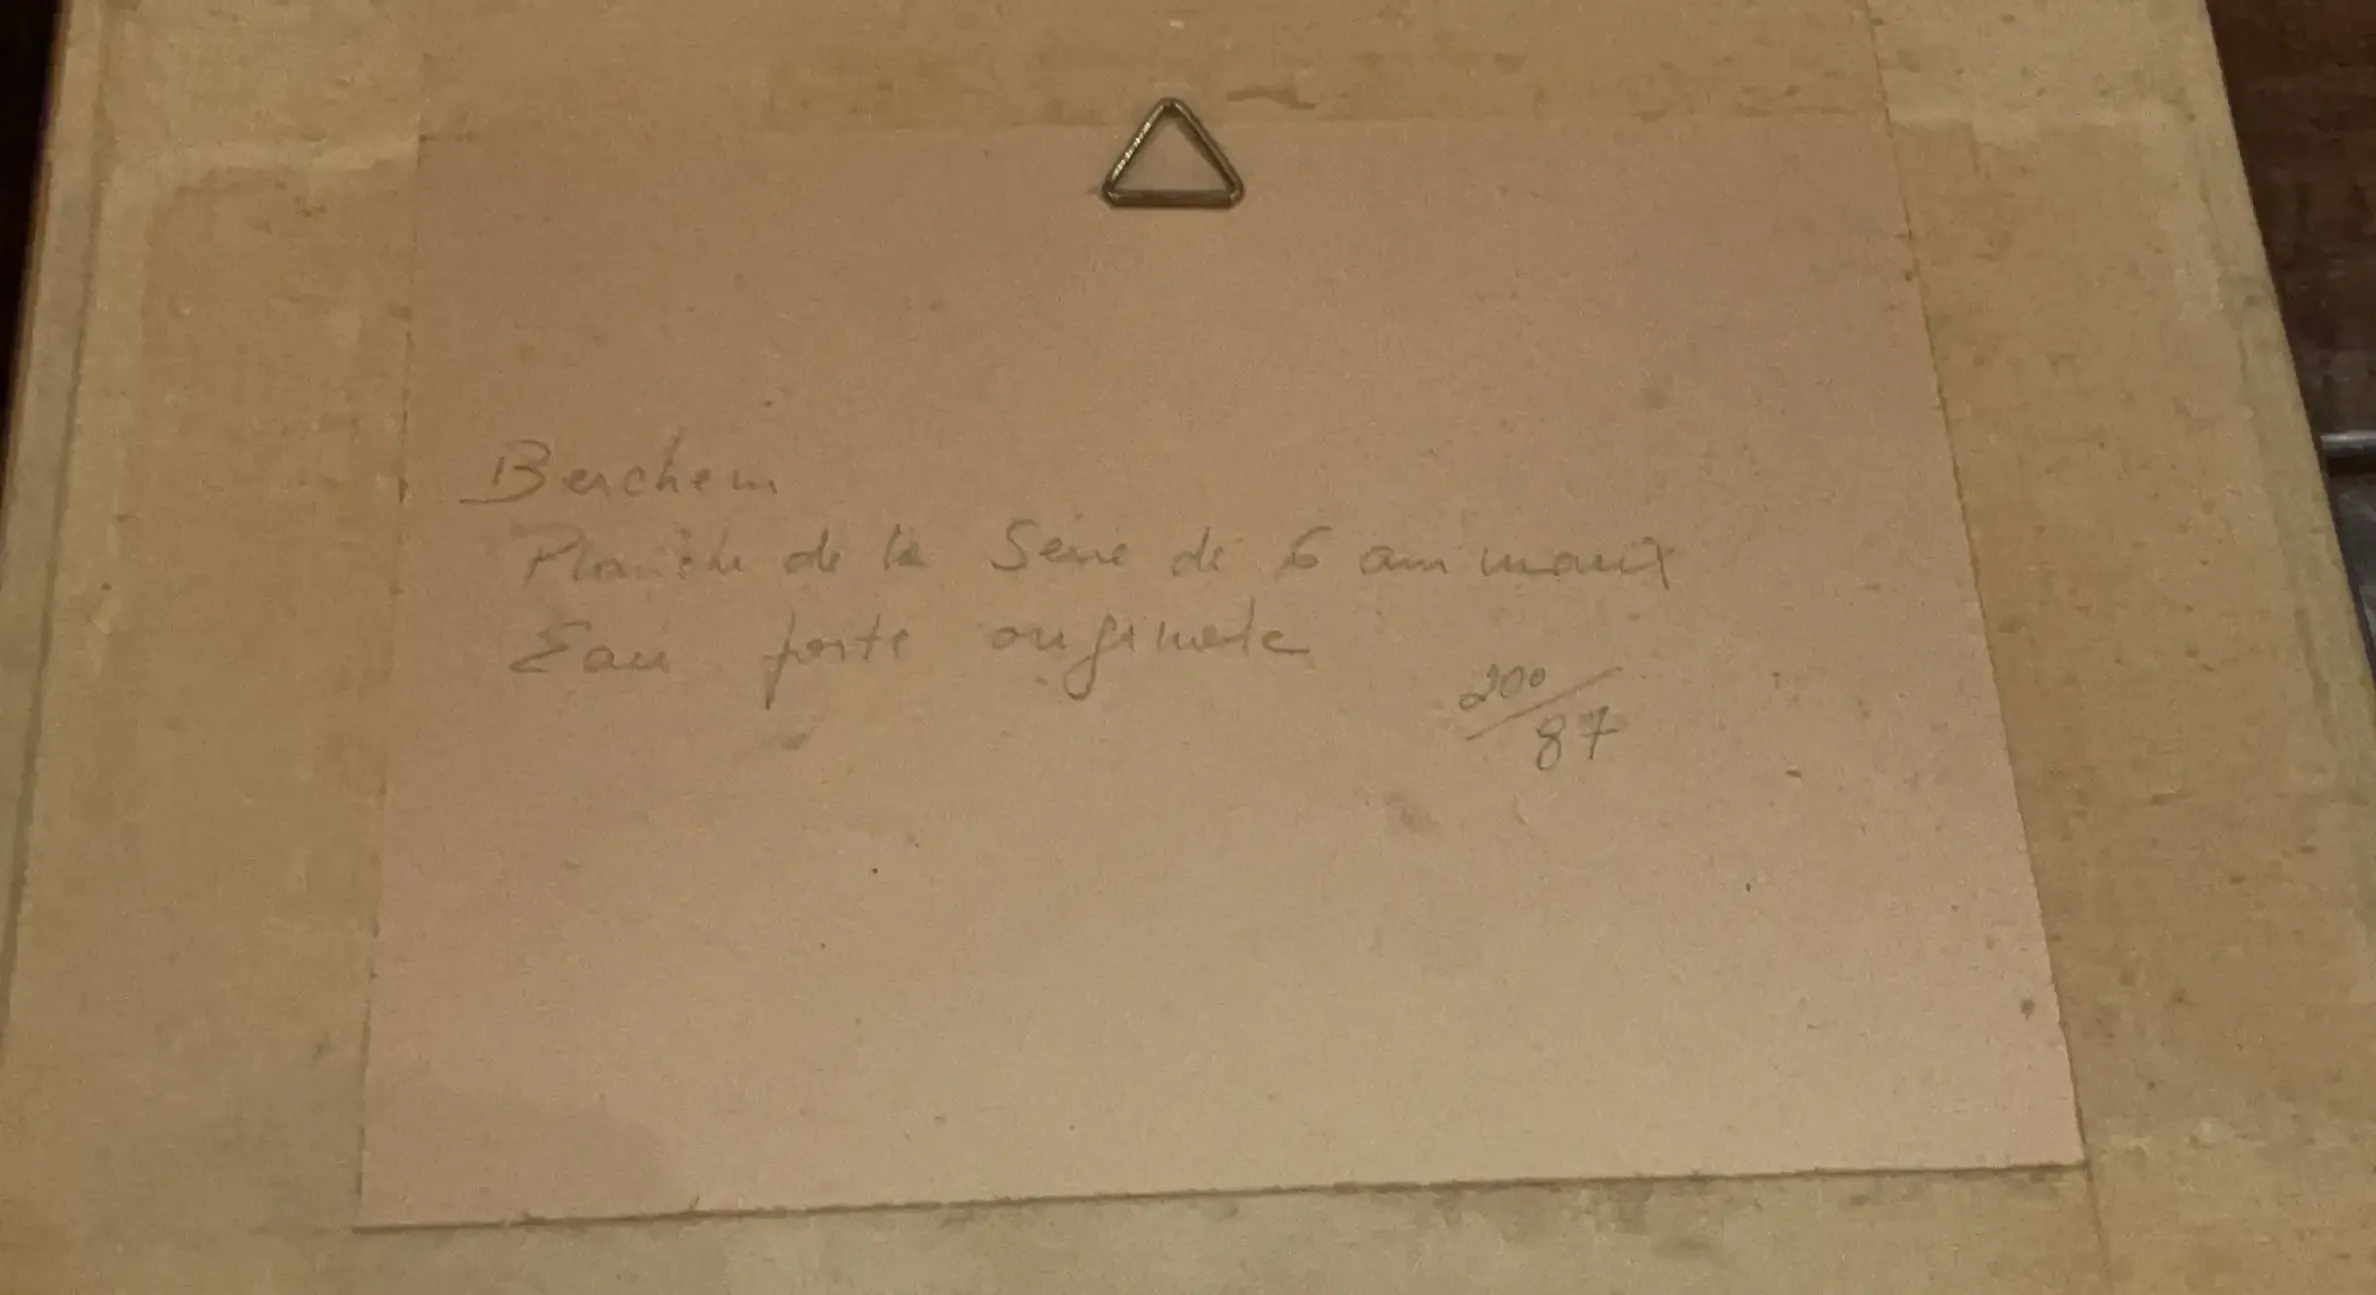 Berchem
Planche de la Série de 6 animaux
Eau forte originale
200/87